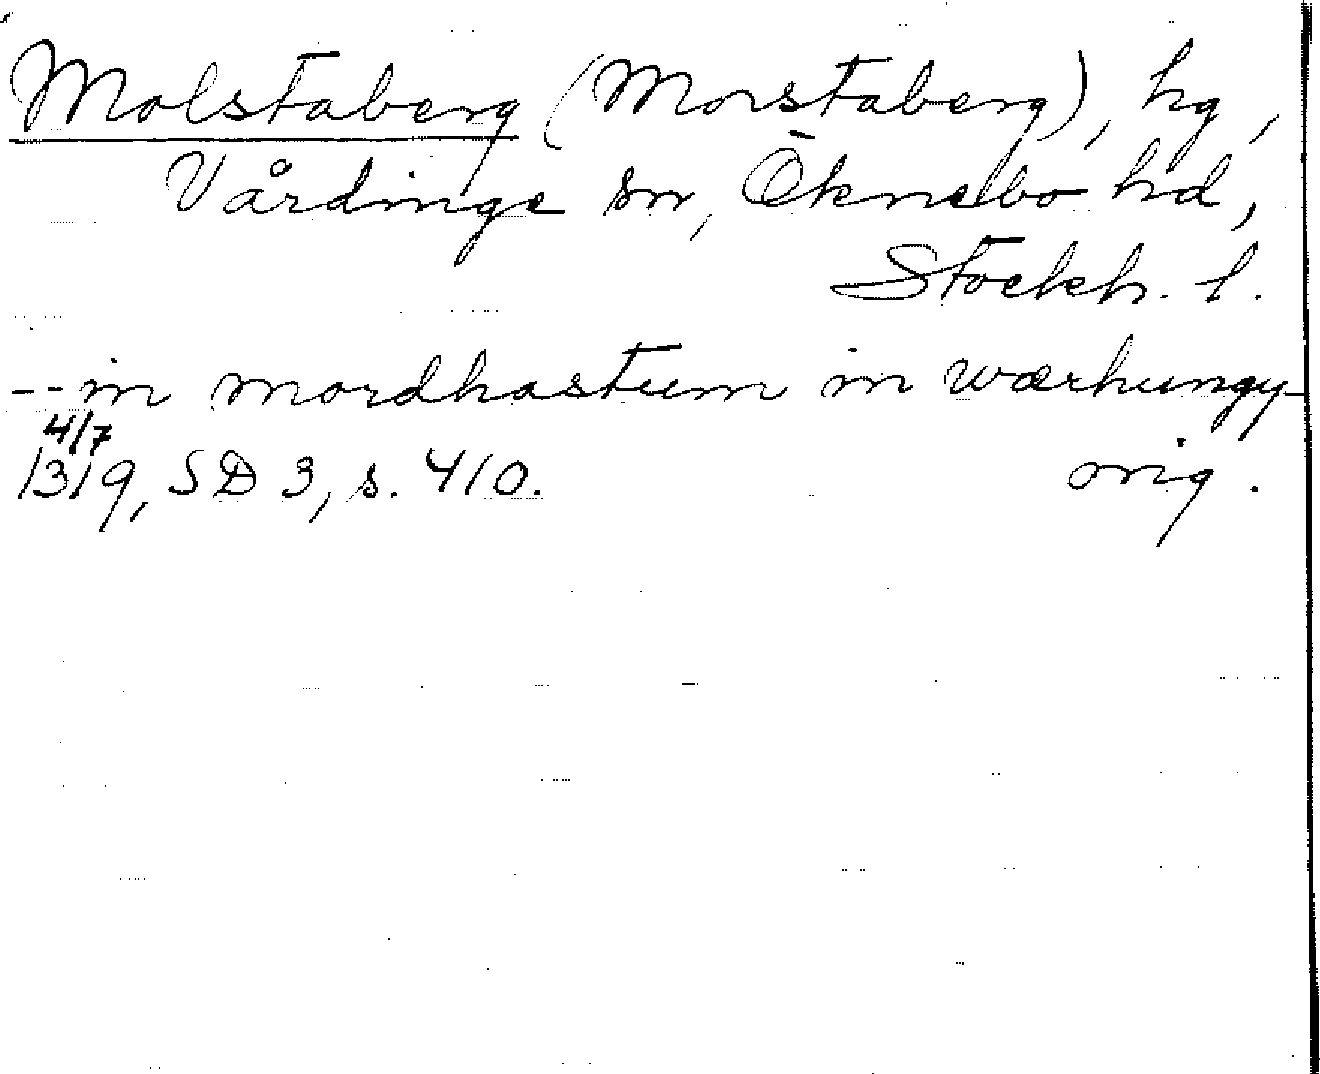 Molstaberg (Morstaberg), hg,
Vårdinge sn, Öknebo hd,
Stockh. l.
-- in mordhastum in wærhungy-
4/7
1319, SD 3, s. 410. orig.